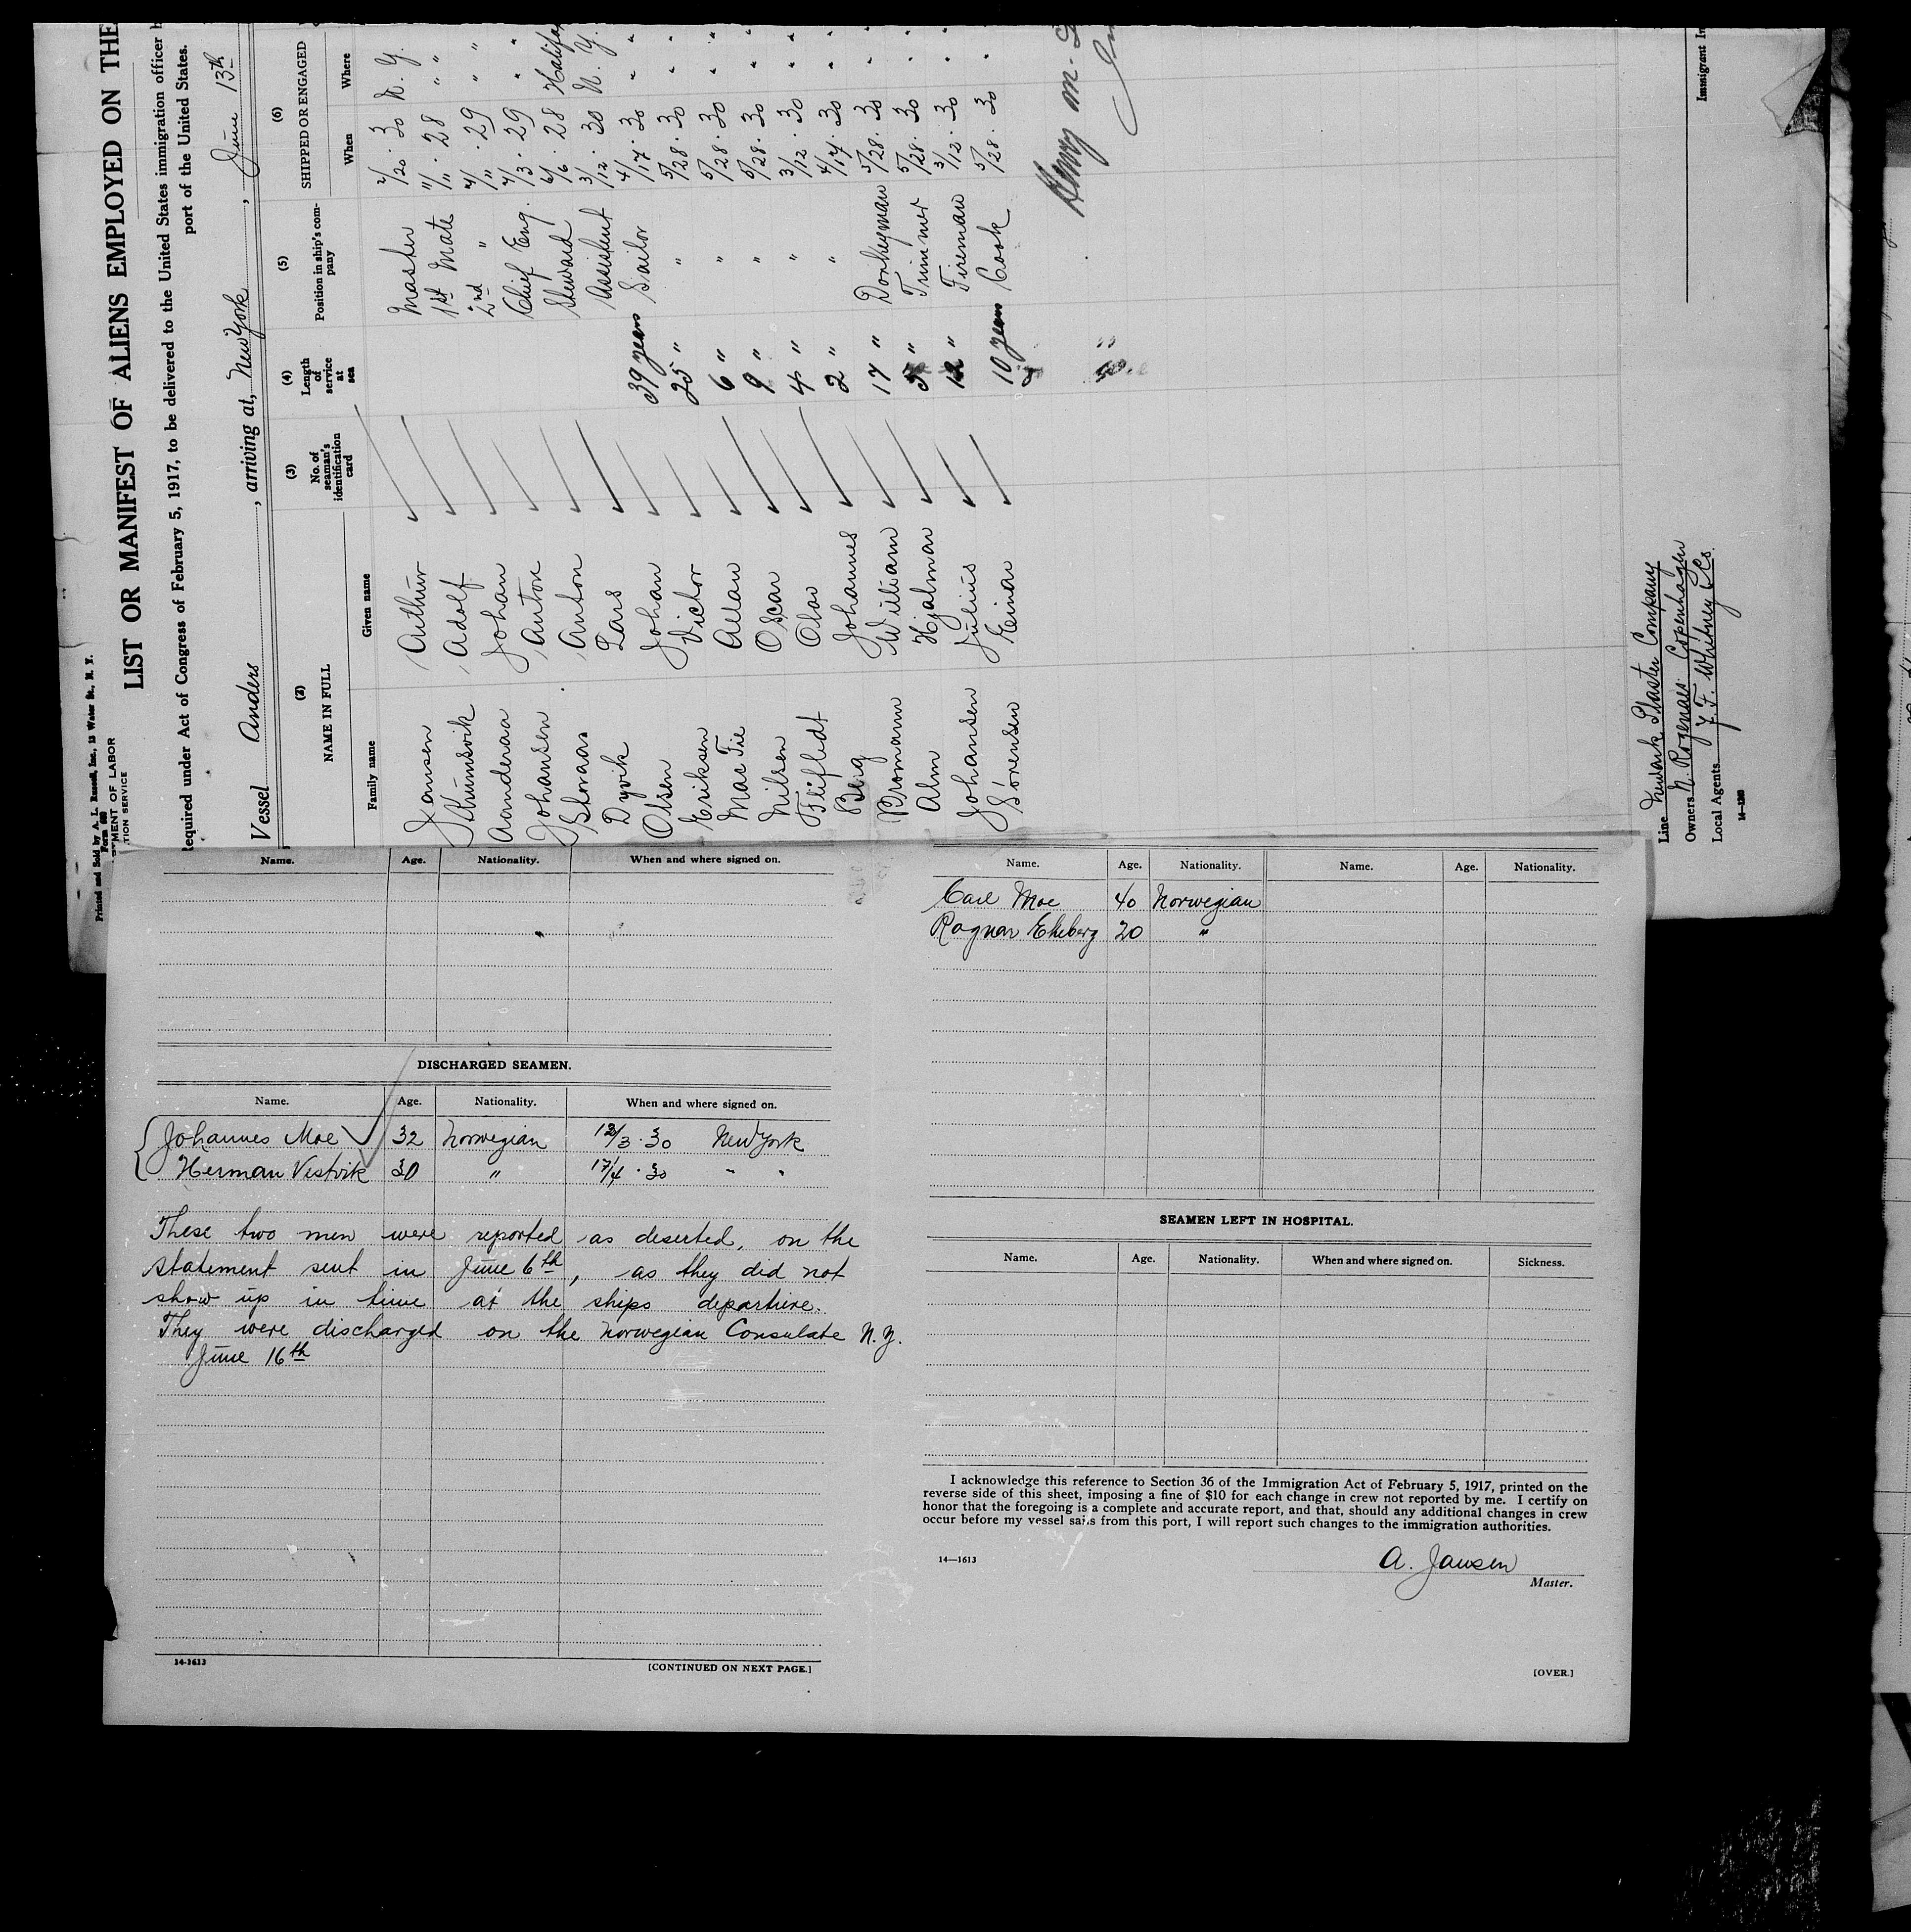 Printed and Sold by A. L. Russell, Inc., 13 Water St., N. Y.
Form 680
MENT OF LABOR
TION SERVICE
LIST OR MANIFEST OF ALIENS EMPLOYED ON THE
Required under Act of Congress of February 5, 1917, to be delivered to the United States immigration officer
port of the United States.
Vessel Anders, arriving at, New York, June 13th
(2) (3) (4) (5) (6)
NAME IN FULL No. of seaman's identification card Length of service at sea Position in ship's company SHIPPED OR ENGAGED
Family name Given name When Where
Jansen Arthur Master 2/20 · 30 N. Y.
Adolf 1st Mate 11/11 · 28 " "
Aanderaa Johan 2nd " 4/11 · 29 " "
Johansen Anton Chief Eng. 4/3 · 29 "
Anton Steward 6/6 · 28 Halifax
Dyvik Lars Assistent 3/12 · 30 N. Y.
Olsen Johan 39 years Sailor 4/17 · 30 " "
Eriksen Victor 25 " " 5/28 · 30 " "
Mac Fie Allan 6 " " 5/28 · 30 " "
Nilsen Oscar 9 " " 5/28 · 30 " "
Olav 4 " " 3/12 · 30 " "
Berg Johannes 2 " " 4/17 · 30 " "
Bromann William 17 " Donkeyman 5/28 · 30 " "
Alm Hjalmar " Trimmer 5/28 · 30 " "
Johansen Julius 12 " Fireman 3/12 · 30 " "
Sørensen Einar 10 years Cook 5/28 · 30 "
Henry M.
Line Newark Plaster Company
Owners Copenhagen
Local Agents J. F. Whitney & Co.
Immigrant In
Name. Age. Nationality. When and where signed on.
DISCHARGED SEAMEN.
Name. Age. Nationality. When and where signed on.
Johannes Moe 32 Norwegian 12/3 · 30 New York
Herman Vestvik 30 " 17/4 · 30 " "
These two men were reported as deserted, on the
statement sent in June 6th, as they did not
show up in time at the ships departure.
They were discharged on the Norwegian Consulate N.Y.
June 16th
14-1613
[CONTINUED ON NEXT PAGE.]
Name. Age. Nationality. Name. Age. Nationality.
Carl Moe 40 Norwegian
Ragnar Ekeberg 20 "
SEAMEN LEFT IN HOSPITAL.
Name. Age. Nationality. When and where signed on. Sickness.
I acknowledge this reference to Section 36 of the Immigration Act of February 5, 1917, printed on the
reverse side of this sheet, imposing a fine of $10 for each change in crew not reported by me. I certify on
honor that the foregoing is a complete and accurate report, and that, should any additional changes in crew
occur before my vessel sails from this port, I will report such changes to the immigration authorities.
14—1613
A. Jansen
Master.
[OVER.]